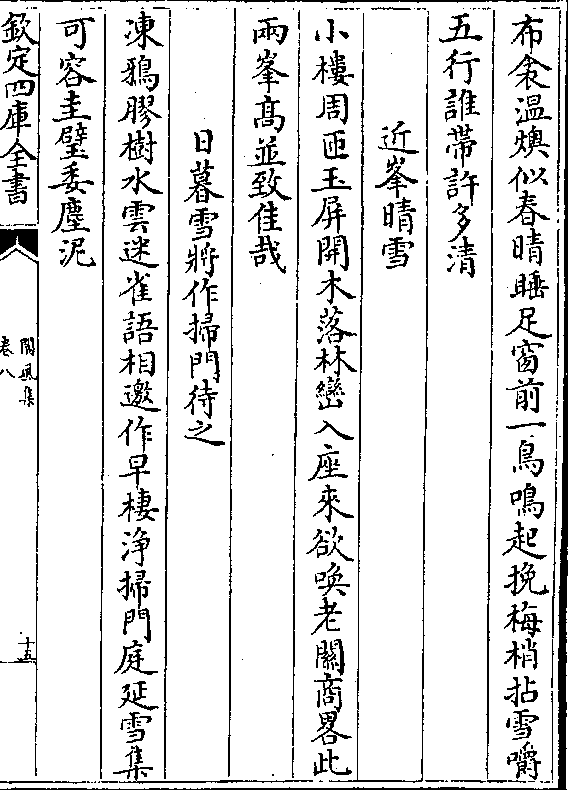 布衾温燠似春晴睡足窗前一鳥鳴起挽梅梢拈雪嚼
五行誰帶許多清
近峯晴雪
小樓周匝玉屏開木落林巒入座來欲喚老關商畧此
兩峯髙並致佳哉
日暮雪將作掃門待之
凍鴉膠樹水雲迷雀語相邀作早棲浄掃門庭延雪集
可容圭璧委塵泥
欽定四庫全書
閬風集
卷八
十五